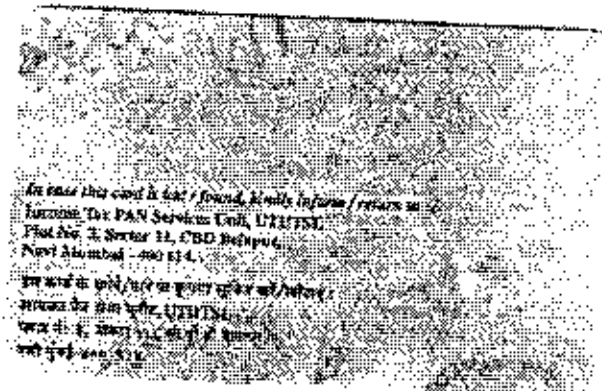 In case this card is lost / found, kindly inform / return to
Income Tax PAN Services Unit, UTIITSL
Plot No. 3, Sector 11, CBD Belapur,
Navi Mumbai - 400 614.
इस कार्ड के खोने/पाने पर कृपया सूचित करें/लौटाएं :
आयकर पैन सेवा यूनीट, UTIITSL
प्लाट नं: 3, सेक्टर ११, सी.बी.डी. बेलापुर,
नवी मुंबई-४०० ६१४.